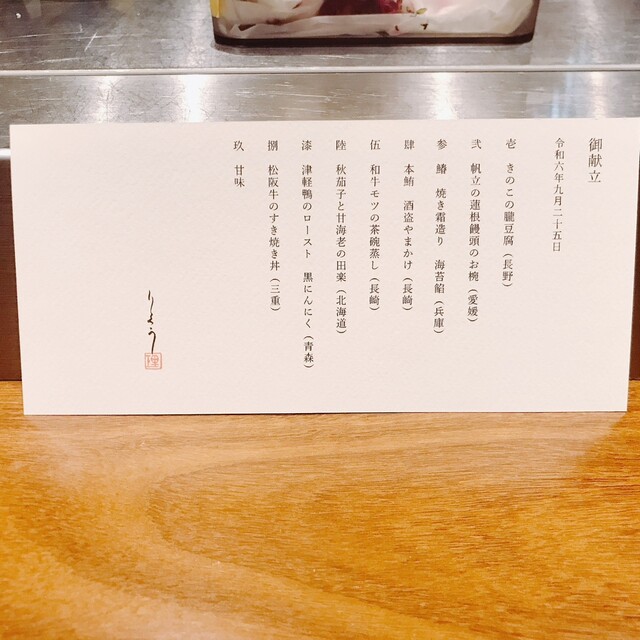 御献立
令和六年九月二十五日
壱 きのこの朧豆腐（長野）
弐 帆立の蓮根饅頭のお椀（愛媛）
参 鰆 焼き霜造り 海苔餡（兵庫）
肆 本鮪 酒盗やまかけ（長崎）
伍 和牛モツの茶碗蒸し（長崎）
陸 秋茄子と甘海老の田楽（北海道）
漆 津軽鴨のロースト 黒にんにく（青森）
捌 松阪牛のすき焼き丼（三重）
玖 甘味
りよう